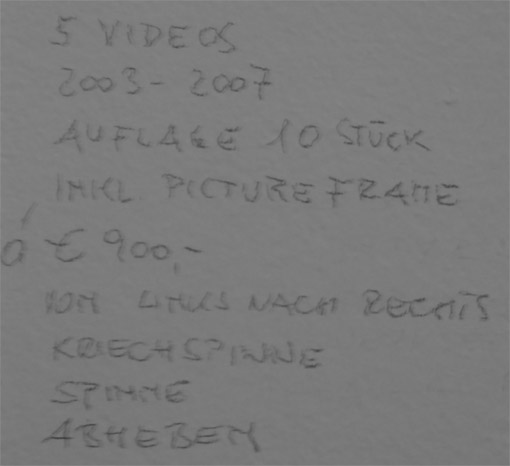 5 VIDEOS
2003 - 2007
AUFLAGE 10 STÜCK
INKL. PICTURE FRAME
á € 900,-
VON LINKS NACH RECHTS
KRIECHSPINNE
SPINNE
ABHEBEN